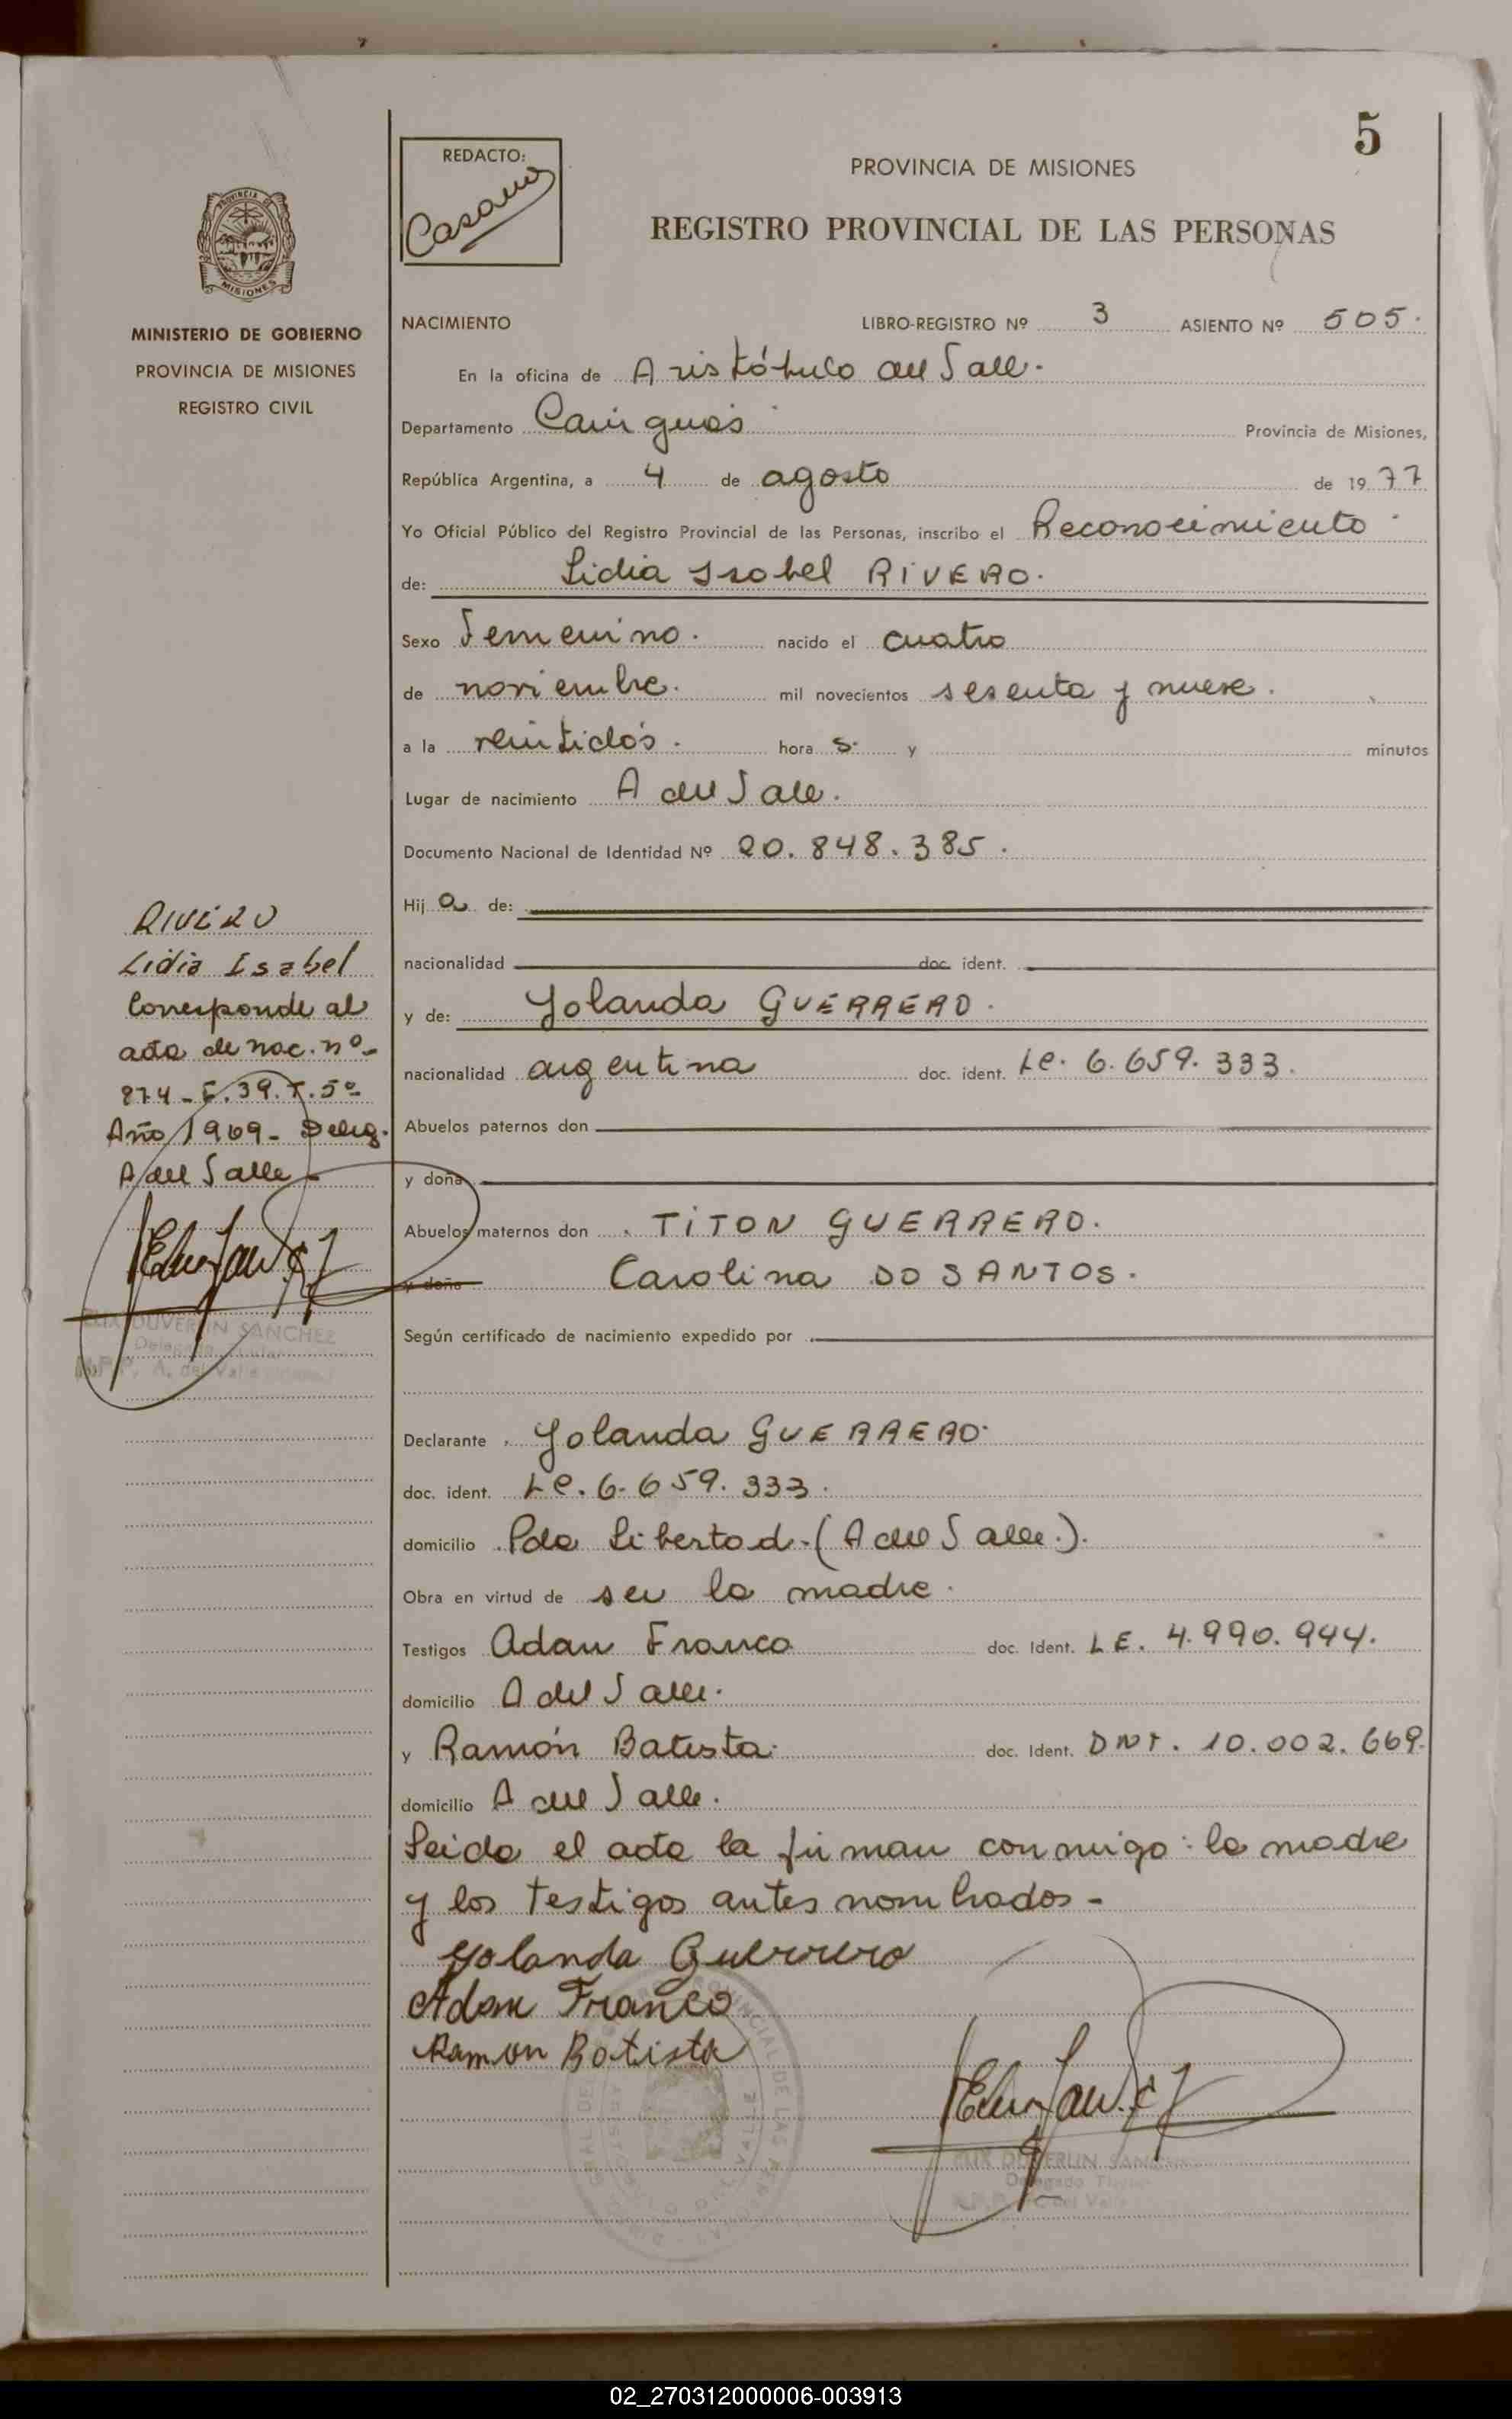 5
REDACTO:
Casano
PROVINCIA DE MISIONES
REGISTRO PROVINCIAL DE LAS PERSONAS
PROVINCIA DE
MISIONES
MINISTERIO DE GOBIERNO
PROVINCIA DE MISIONES
REGISTRO CIVIL
NACIMIENTO LIBRO-REGISTRO Nº 3 ASIENTO Nº 505.
En la oficina de Aristóbulo del Valle.
Departamento Cainguás Provincia de Misiones,
República Argentina, a 4 de agosto de 1977
Yo Oficial Público del Registro Provincial de las Personas, inscribo el Reconocimiento
de: Lidia Isabel RIVERO.
Sexo Femenino. nacido el cuatro
de noviembre. mil novecientos sesenta y nueve.
a la veintidós. hora s. y minutos
Lugar de nacimiento A del Valle.
Documento Nacional de Identidad Nº 20.848.385.
Hij a de:
nacionalidad doc. ident.
y de: Yolanda GUERRERO.
nacionalidad argentina doc. ident. Lc. 6.659.333.
Abuelos paternos don
y doña
Abuelos maternos don TITON GUERRERO.
y doña Carolina DO SANTOS.
Según certificado de nacimiento expedido por
Declarante Yolanda GUERRERO.
doc. ident. Lc. 6.659.333.
domicilio Pda Libertad.(A del Valle.).
Obra en virtud de ser la madre.
Testigos Adan Franco doc. Ident. LE. 4.990.944.
domicilio A del Valle.
y Ramón Batista. doc. Ident. DNI. 10.002.669.
domicilio A del Valle.
Leida el acta la firman conmigo: la madre
y los testigos antes nombrados-
Yolanda Guerrero
Adan Franco
Ramon Batista
RIVERO
Lidia Isabel
Corresponde al
acta de nac. nº-
874-F.39.T.5º
Año 1969- Deleg.
A del Valle-
ELIX DUVERLIN SANCHEZ
Delegado Titular
R.P.P. A. del Valle
ELIX DUVERLIN SANCHEZ
Delegado Titular
R.P.P. A. del Valle
02_270312000006-003913